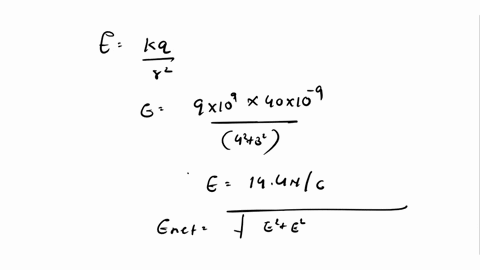 E = kq / r²
E = 9×10⁹ × 40×10⁻⁹ / (4²+3²)
E = 14.4N/C
Enet = √ E²+E²